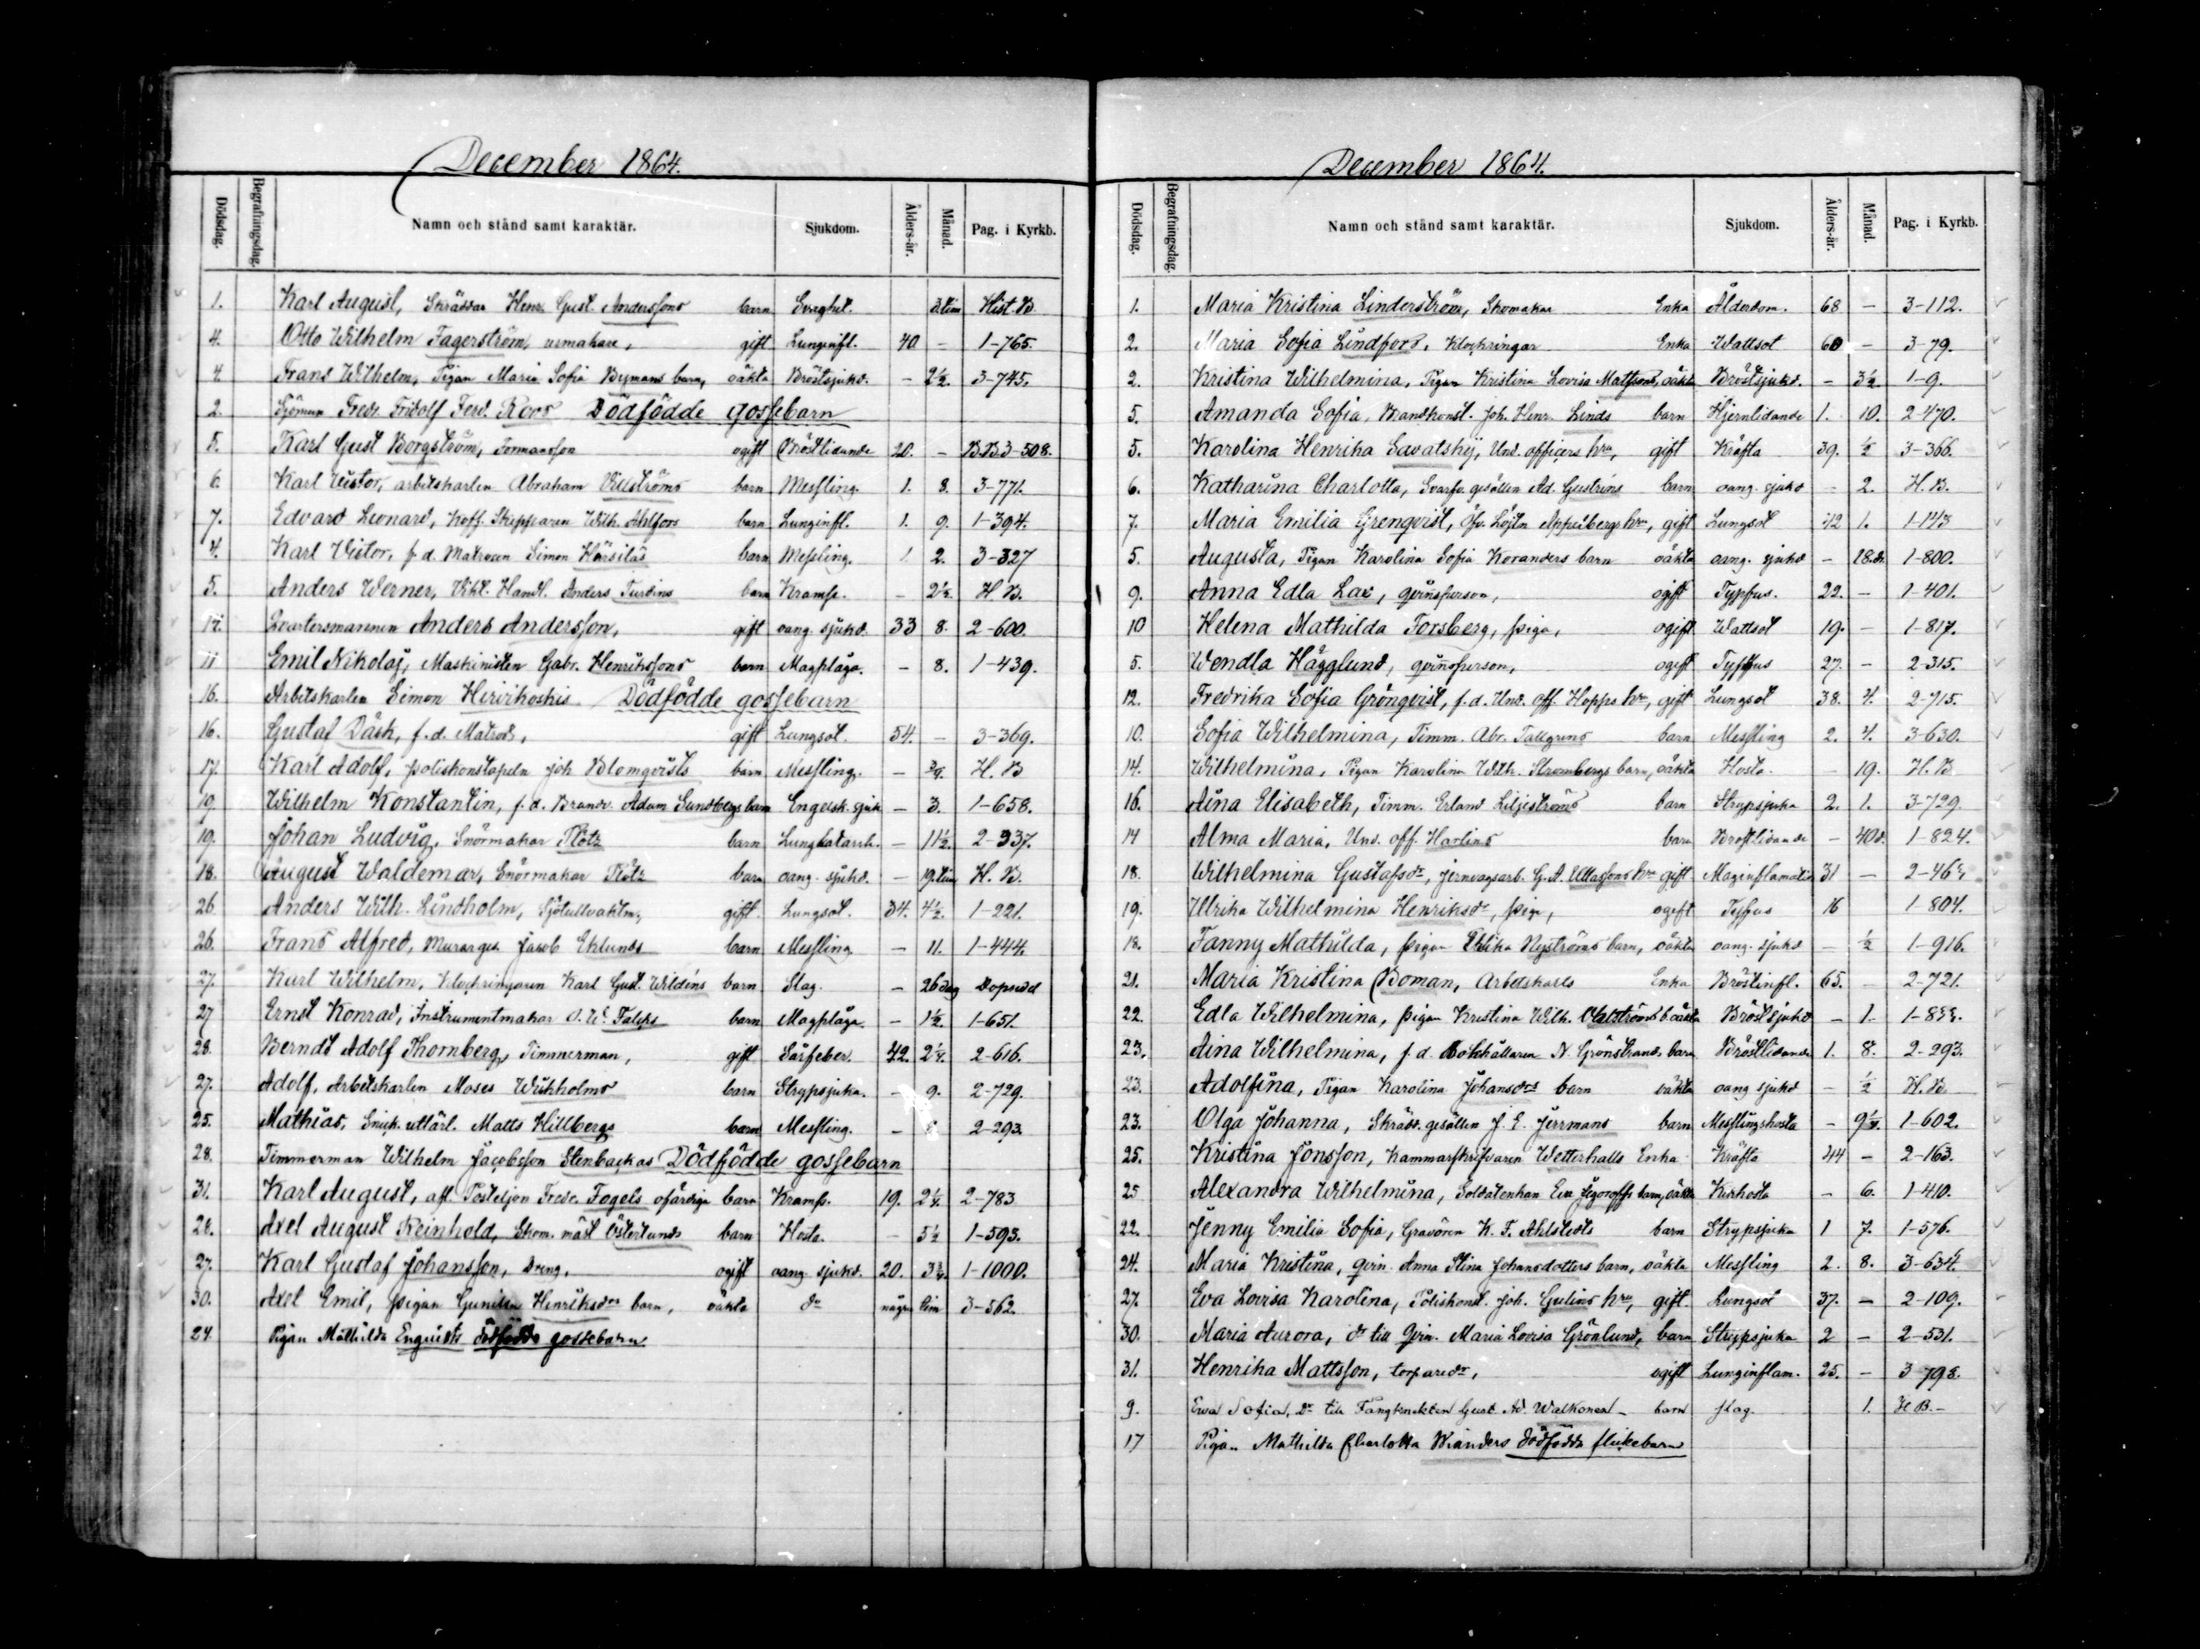 December 1864.
Dödsdag. Begrafningsdag. Namn och stånd samt karaktär. Sjukdom. Ålders-år. Månad. Pag. i Kyrkb.
1. Karl August, Skräddar Henr. Gust. Anderssons barn Svaghet. 3 tim Hist. B.
4. Otto Wilhelm Fagerström, urmakare, gift Lunginfl. 40 - 1-765.
4 Frans Wilhelm, Pigan Maria Sofia Nymans barn, oäkta Bröstsjukd. - 2½. 3-745.
2. Sjöman Fredr. Fridolf Ferd. Roos Dödfödde gossebarn
5. Karl Gust Borgström, Formansson ogift Bröstlidande 20. - B.B.3-508.
6. Karl Victor, arbetskarlen Abraham barn Messling. 1. 8. 3-771.
7. Edvard Leonard, Koff. Skepparen Wilh. Ahlfors barn Lunginfl. 1. 9. 1-394.
4. Karl Victor, f.d. Matrosen Simon barn Messling. 1 2. 3-327
5. Anders Werner, Vikt. Handl. Anders barn Kramp. - 2½. H. B.
14. Qvartersmannen Anders Andersson, gift oang. sjukd. 33 8. 2-600.
11 Emil Nikolaj, Maskinisten Gabr. Henrikssons barn Magplåga. - 8. 1-439.
16. Arbetskarlen Simon Hirvikoskis Dödfödde gossebarn
16. Gustaf Dåsk, f.d. Matros, gift Lungsot. 54. - 3-369.
17. Karl Adolf, poliskonstapeln Joh Blomqvists barn Messling. - ¾. H. B
19. Wilhelm Konstantin, f.d. Brandv. Adam Sundbergs barn Engelsk. sjuk - 3. 1-658.
19. Johan Ludvig, Snörmakar Flötz barn Lungkatarrh. - 11½. 2-337.
18. August Waldemar, Snörmakar Flötz barn oang. sjukd. - 19 tim H. B.
26 Anders Wilh. Lindholm, Sjötullvaktm, gift. Lungsot. 34. 4½. 1-221.
26. Frans Alfred, Murarges Jacob Eklunds barn Messling - 11. 1-444.
27. Karl Wilhelm, Klockringaren Karl Gust. Wildéns barn Slag. - 26 dag Dopsedel
27 Ernst Konrad, Instrumentmakar O. W. Falcks barn Magplåga. - 1½. 1-651.
28. Berndt Adolf Thornberg, Timmerman, gift Sårfeber. 42. 2¼. 2-616.
27. Adolf, Arbetskarlen Moses Wikholms barn Strypsjuka. - 9. 2-729.
25. Mathias, Snick. utlärl. Matts Hillbergs barn Messling. - 2-293
28. Timmerman Wilhelm Jacobsson Stenbackas Dödfödde gossebarn
31. Karl August, aft. Posteljon Fredr. Fogels ofärdige barn Kramp. 19. 2¼. 2-783
28. Axel August Reinhold, Skom. mäst Österlunds barn Hosta. - 5½ 1-593.
27. Karl Gustaf Johansson, Dreng, ogift oang. sjukd. 20. 3¾. 1-1000.
30. Axel Emil, pigan Gunilla Henriksdrs barn, oäkta do någon tim 3-562.
24. Pigan Mathilda Enqvists dödfödda gossebarn.
December 1864.
Dödsdag. Begrafningsdag. Namn och stånd samt karaktär. Sjukdom. Ålders-år. Månad. Pag. i Kyrkb.
1. Maria Kristina Linderström, Skomakar Enka Ålderdom. 68 - 3-112.
2. Maria Sofia Lindfors, Klockringar Enka Wattsot 60 - 3-79.
2. Kristina Wilhelmina, Pigan Kristina Lovisa Mattsons, oäkta Bröstsjukd. - 3½ 1-9.
5. Amanda Sofia, Brandkonst. Joh. Henr. Linds barn Hjernlidande 1. 10. 2-470.
5. Karolina Henrika Savatskij, Und. officers hru, gift Kräfta 39. ½ 3-366.
6. Katharina Charlotta, Svarfv. gesällen Ad. Gustréns barn oang. sjukd - 2. H. B.
7. Maria Emilia Grenqvist, Öfv. Löjtn Appelbergs hru, gift Lungsot 42 1. 1-143
5. Augusta, Pigan Karolina Sofia Koranders barn oäkta oang. sjukd - 18 d. 1-800.
9. Anna Edla Lax, qvinsperson, ogift Typhus. 22. - 1-401.
10 Helena Mathilda Forsberg, piga, ogift Wattsot 19. - 1-817.
5. Wendla Hägglund, qvinsperson, ogift Typhus 27. - 2-315.
12. Fredrika Sofia Grönqvist, f.d. Und. Off. Hopps hru, gift Lungsot 38. 4. 2-715.
10. Sofia Wilhelmina, Timm. Abr. Tallgrens barn Messling 2. 4. 3-630.
14. Wilhelmina, Pigan Karolina Wilh. Strömbergs barn, oäkta Hosta. - 19. H. B
16. Aina Elisabeth, Timm. Erland Liljeströms barn Strypsjuka 2. 1. 3-729.
14 Alma Maria, Und. off. Harlins barn Bröstlidande - 40 d. 1-824.
18. Wilhelmina Gustafsdr, jernvägsarb. G. A. hru gift Maginflamation 31 -
19. Ulrika Wilhelmina Henriksdr, piga, ogift Typhus 16 1-804.
18. Fanny Mathilda, pigan Ulrika Nyströms barn, oäkta oang. sjukd - ½ 1-916.
21. Maria Kristina Boman, Arbetskarls Enka Bröstinfl. 65. - 2-721.
22. Edla Wilhelmina, pigan Kristina Wilh. b. oäkta Bröstsjukd - 1.
23. Aina Wilhelmina, f.d. Bokhållaren N. Grönstrands barn Bröstlidande 1. 8. 2-293.
23. Adolfina, Pigan Karolina Johansdrs barn oäkta oang sjukd - ½ H. B.
23. Olga Johanna, Skrädd. gesällen J. E. Jerrmans barn Messlingshosta - 9½. 1-602.
25. Kristina Jonsson, Kammarskrifvaren Wetterhalls Enka Kräfta 44 - 2-163.
25 Alexandra Wilhelmina, Soldatenkan Eva Jegoroffs barn, oäkta Kikhosta - 6. 1-410.
22. Jenny Emilia Sofia, Gravören K. F. Ahlstedts barn Strypsjuka 1 7. 1-576.
24. Maria Kristina, qvin. Anna Stina Johansdotters barn, oäkta Messling 2. 8. 3-634.
27. Eva Lovisa Karolina, Poliskonst. Joh. Gulins hru, gift. Lungsot 37. - 2-109.
30. Maria Aurora, dr till Qvin. Maria Lovisa Grönlund, barn Strypsjuka 2 - 2-531.
31. Henrika Mattsson, torparedr, ogift Lunginflam. 25. - 3-798.
9. Ewa Sofia, dr till Fångknekten Gust. Ad. Walkonen - barn slag. 1. H B. -
17 Pigan Mathilda Charlotta Wianders dödfödda flickebarn